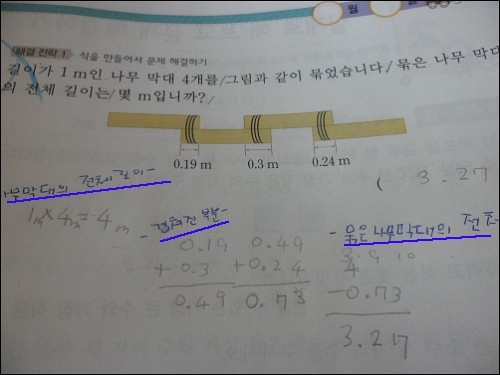 해결 전략 1 식을 만들어서 문제 해결하기
길이가 1 m인 나무 막대 4개를/그림과 같이 묶었습니다/묶은 나무 막대
의 전체 길이는/몇 m입니까?/
0.19 m 0.3 m 0.24 m
( 3.27
나무막대의 전체길이-
1m×4m=4m
- 겹쳐진 부분-
0.19
+0.3
0.49
0.49
+0.24
0.73
- 묶은 나무막대의 전체
3 9 10
4
-0.73
3.27